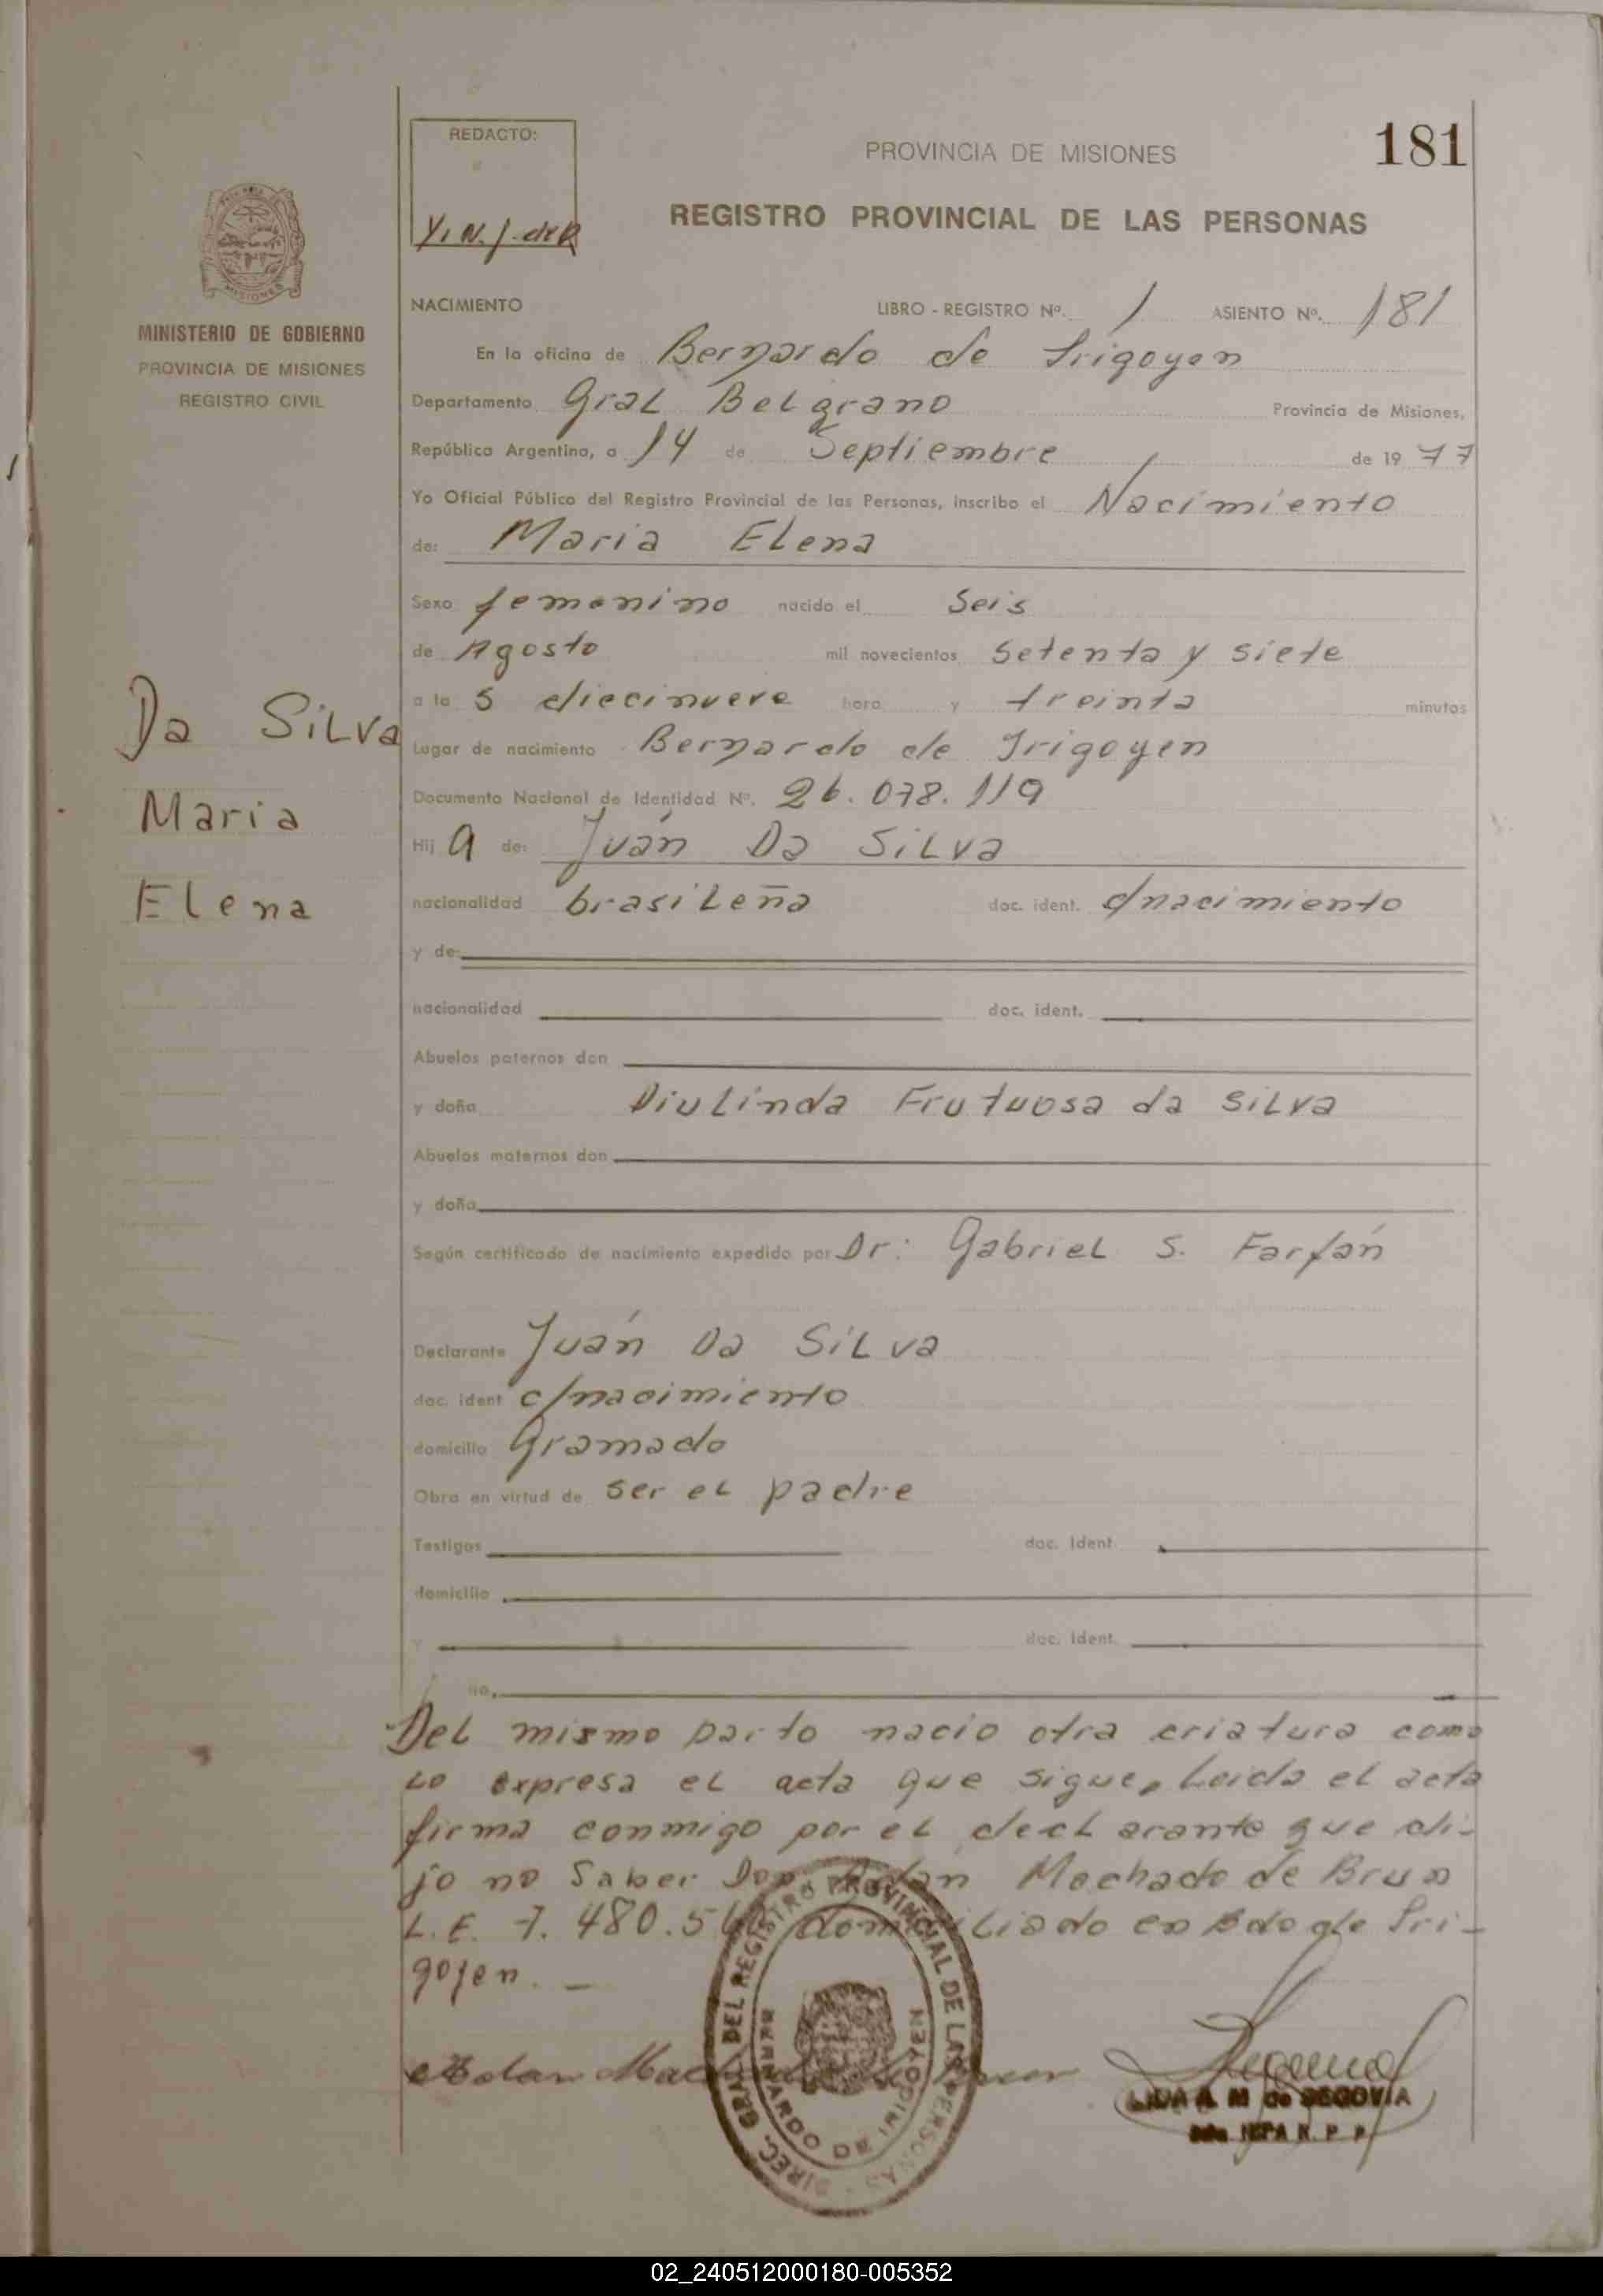 REDACTO:
PROVINCIA DE MISIONES
181
REGISTRO PROVINCIAL DE LAS PERSONAS
MISIONES
MINISTERIO DE GOBIERNO
PROVINCIA DE MISIONES
REGISTRO CIVIL
NACIMIENTO LIBRO - REGISTRO Nº. 1 ASIENTO Nº. 181
En la oficina de Bernardo de Irigoyen
Departamento Gral Belgrano Provincia de Misiones,
República Argentina, a 14 de Septiembre de 1977
Yo Oficial Público del Registro Provincial de las Personas, inscribo el Nacimiento
de: Maria Elena
Sexo femenino nacido el Seis
de Agosto mil novecientos setenta y siete
a la s diecinueve hora y treinta minutos
Da Silva
Lugar de nacimiento Bernardo de Irigoyen
Documento Nacional de Identidad Nº. 26.078.119
Maria
Hij a de: Juán Da Silva
Elena
nacionalidad brasileña doc. ident. c/nacimiento
y de
nacionalidad doc. ident.
Abuelos paternos don
y doña Diulinda Frutuosa da Silva
Abuelos maternos don
y doña
Según certificado de nacimiento expedido por Dr: Gabriel S. Farfán
Declarante Juán Da Silva
doc. ident c/nacimiento
domicilio Gramado
Obra en virtud de ser el padre
Testigos doc. Ident.
domicilio
y doc. Ident.
Del mismo parto nacio otra criatura como
lo expresa el acta que sigue, Leida el acta
firma conmigo por el declarante que di-
jo no saber Don Adan Machado de Brun
L.E. 7.480.5 domiciliado en Bdo de Iri-
goyen. —
DIREC. GRAL. DEL REGISTRO PROVINCIAL DE LAS PERSONAS
BERNARDO DE IRIGOYEN
Adan Machado de Brun
LIDIA A. M de SEGOVIA
R. P. P.
02_240512000180-005352